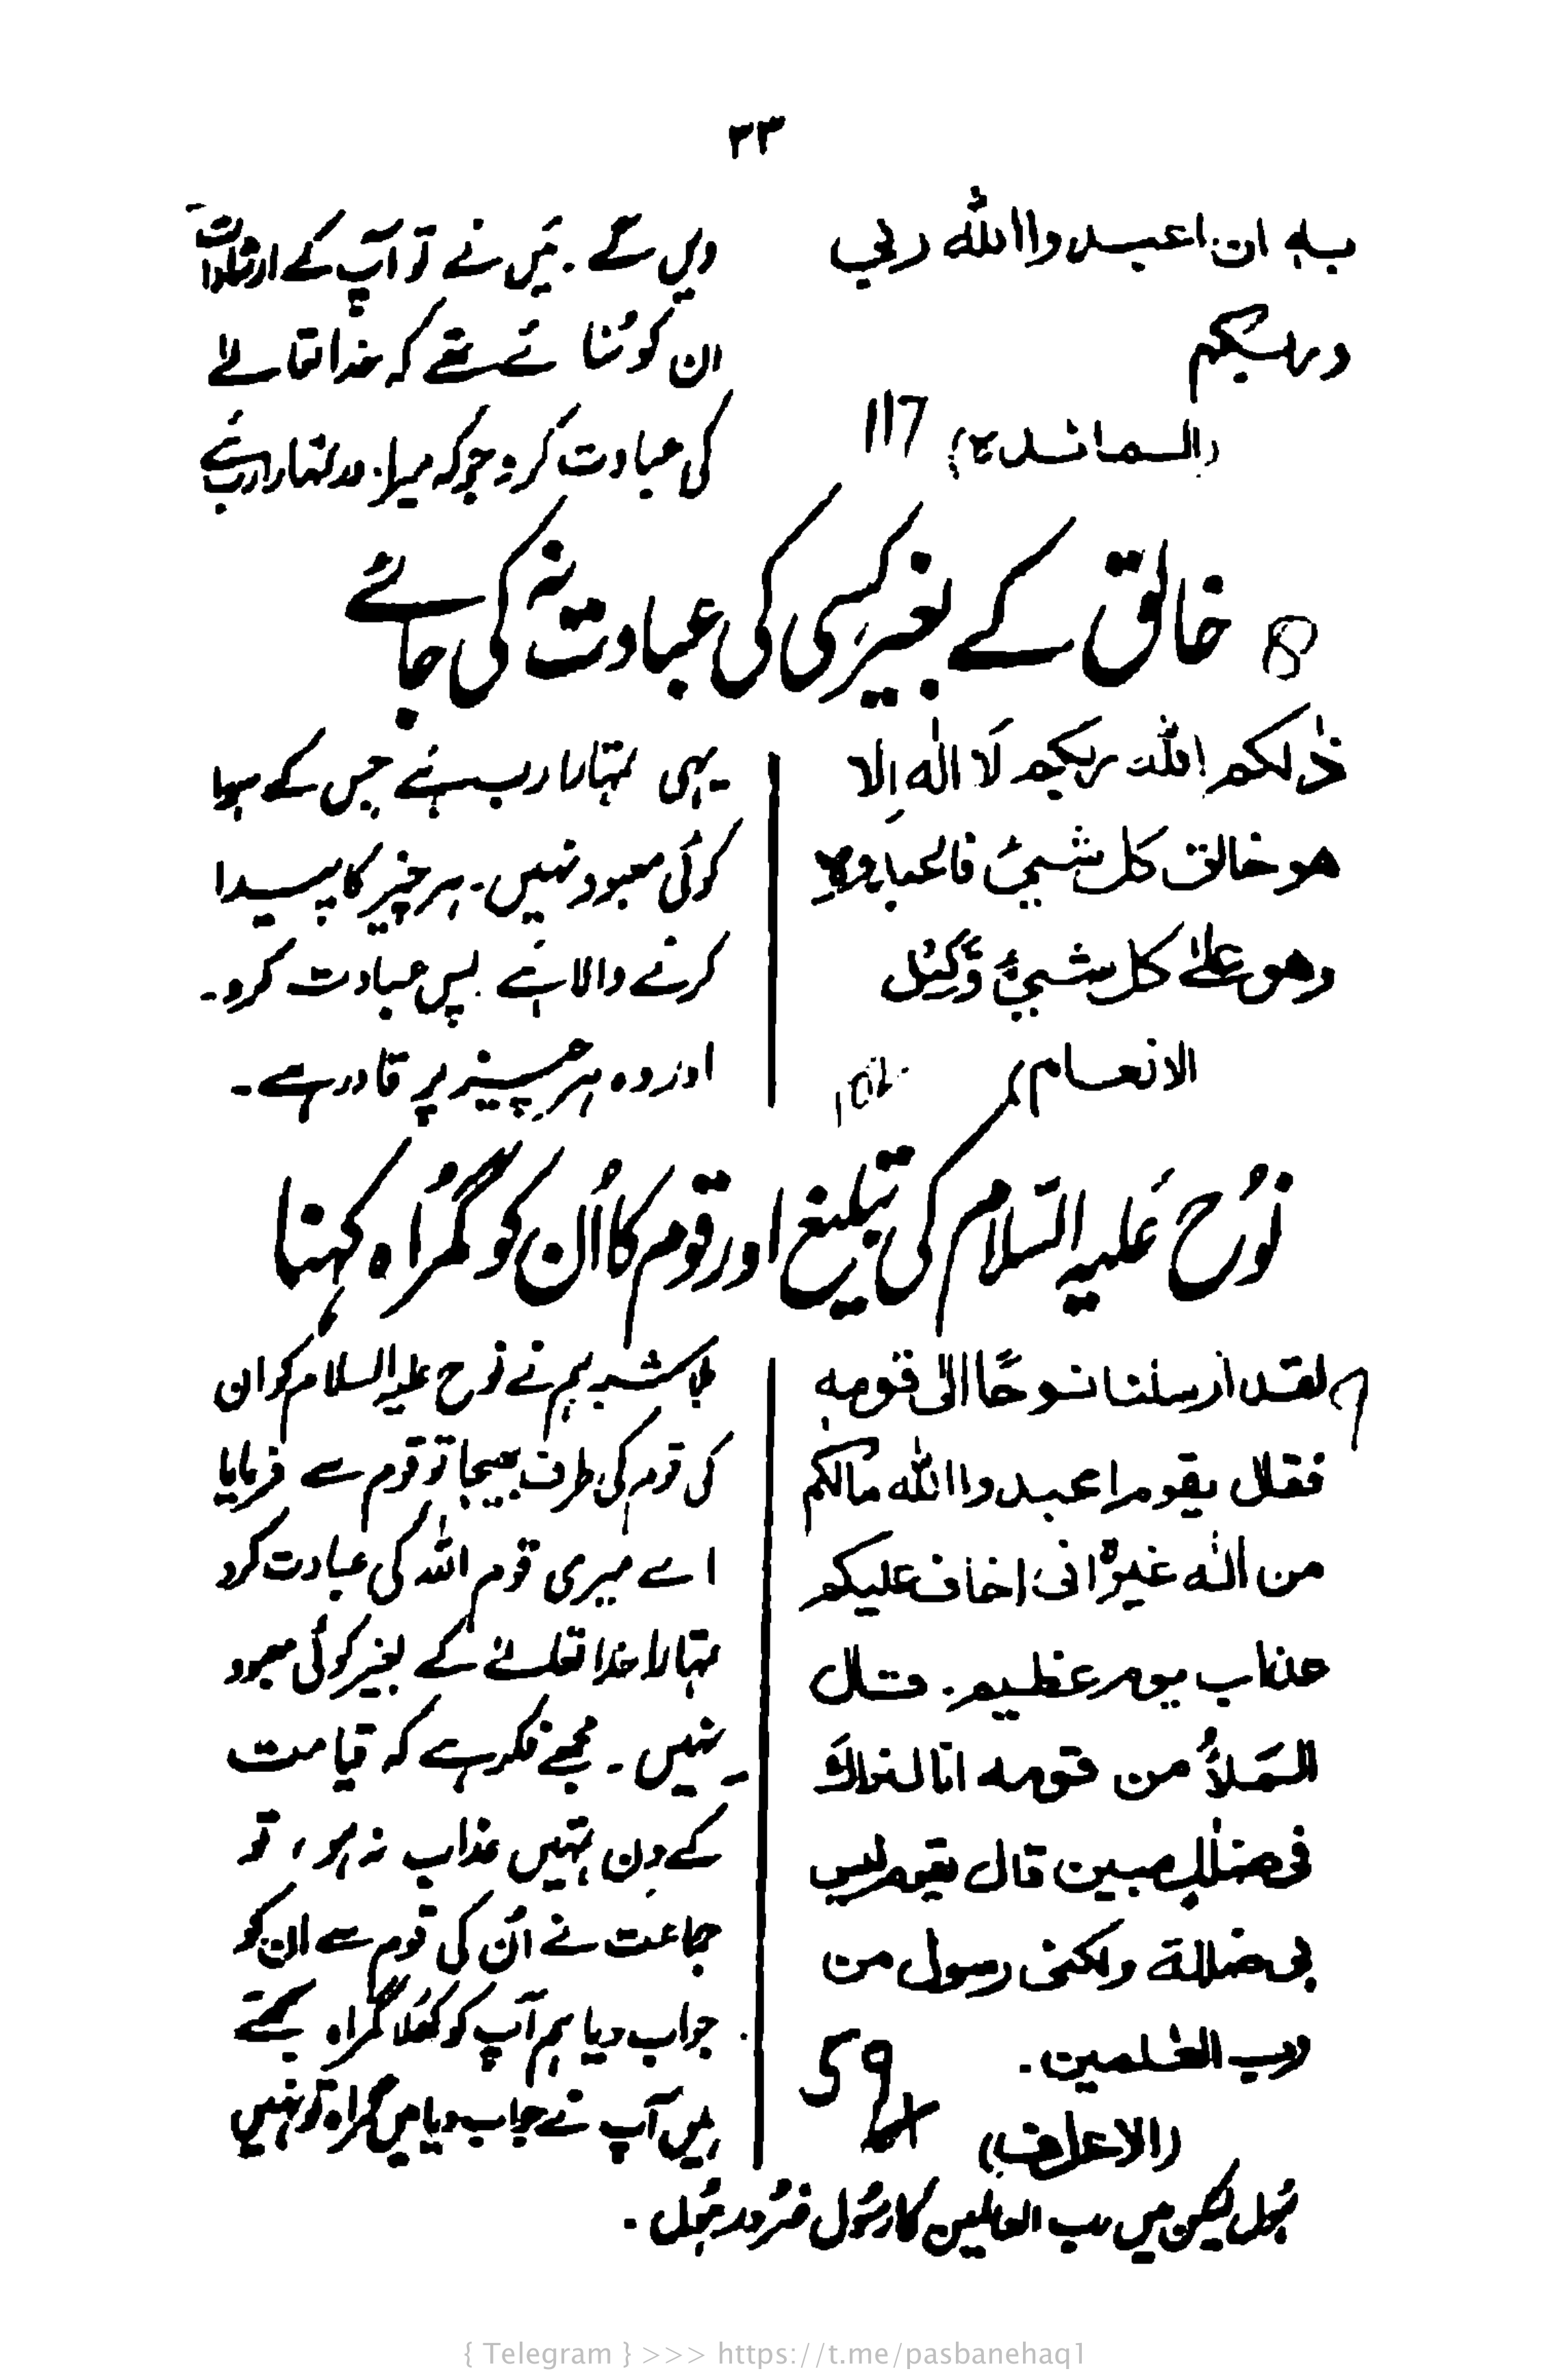 ۳۳
بہ ان اعبدوا اللہ ربی
وربکم
(المائدہ) 117
دیں گے۔ میں نے تو آپ کے ارشادات
ان کو سنائے تھے کہ خدا تعالےٰ
کی عبادت کرو جو کہ میرا اور تمہارا رب ہے
8 خالق کے بغیر کسی کی عبادت نہ کی جائے
ذٰلکم اللہ ربکم لَا الٰہ اِلا
ھو خالق کل شیءٍ فاعبدوہ
وھو علیٰ کل شیءٍ وَّکِیْل
الانعام 102
یہی تمہارا رب ہے جس کے سوا
کوئی معبود نہیں۔ ہر چیز کا پیدا
کرنے والا ہے۔ پس عبادت کرو۔
اور وہ ہر چیز پر قادر ہے۔
نُوح عَلیہ السَّلام کی تبلیغ اور قوم کا اُن کو گمُراہ کہنا
9 لقد ارسلنا نوحًا الیٰ قومہ
فقال یقوم اعبدوا اللہ مالکم
من الٰہ غیرہٗ انی اخاف علیکم
عذاب یوم عظیم۔ قال
المَلَاُ من قومہ انا لنراکَ
فی ضلٰلٍ مبین قال یقوم لیس
بی ضلالة ولکنی رسول من
رب العٰلمین۔
(الاعراف) 59
بلا شبہ ہم نے نوح علیہ السلام کو ان
کی قوم کی طرف بھیجا تو قوم سے فرمایا
اے میری قوم اللہ کی عبادت کرو
تمہارا خدا تعالےٰ کے بغیر کوئی معبود
نہیں۔ مجھے فکر ہے کہ قیامت
کے دن تمہیں عذاب نہ ہو، تو
جماعت نے اُن کی قوم سے ان کو
جواب دیا ہم آپ کو کھُلا گمراہ سمجھتے
ہیں آپ نے جواب دیا میں گمراہ تو نہیں
ہُوں لیکن میں رب العالمین کا رسُول ضرُور ہُوں۔
{ Telegram } >>> https://t.me/pasbanehaq1